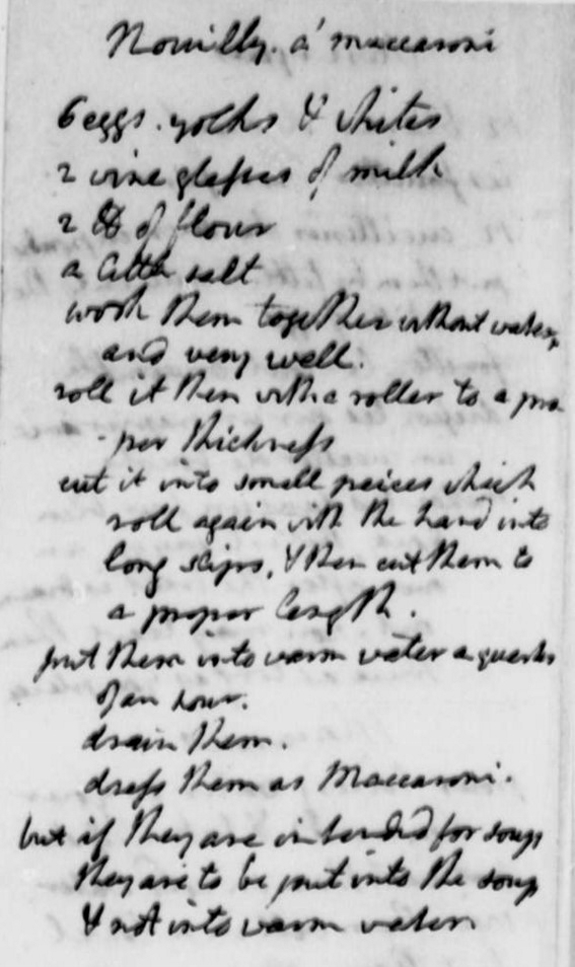 Nouilly. a' maccaroni
6 eggs. yolks & whites
2 wine glasses of milk
2 ℔ of flour
a little salt
work them together without water,
and very well.
roll it then with a roller to a pro
-per thickness
cut it into small peices which
roll again with the hand into
long slips, & then cut them to
a proper length.
put them into warm water a quarter
of an hour.
drain them.
dress them as Maccaroni.
but if they are intended for soups
they are to be put into the soup
& not into warm water